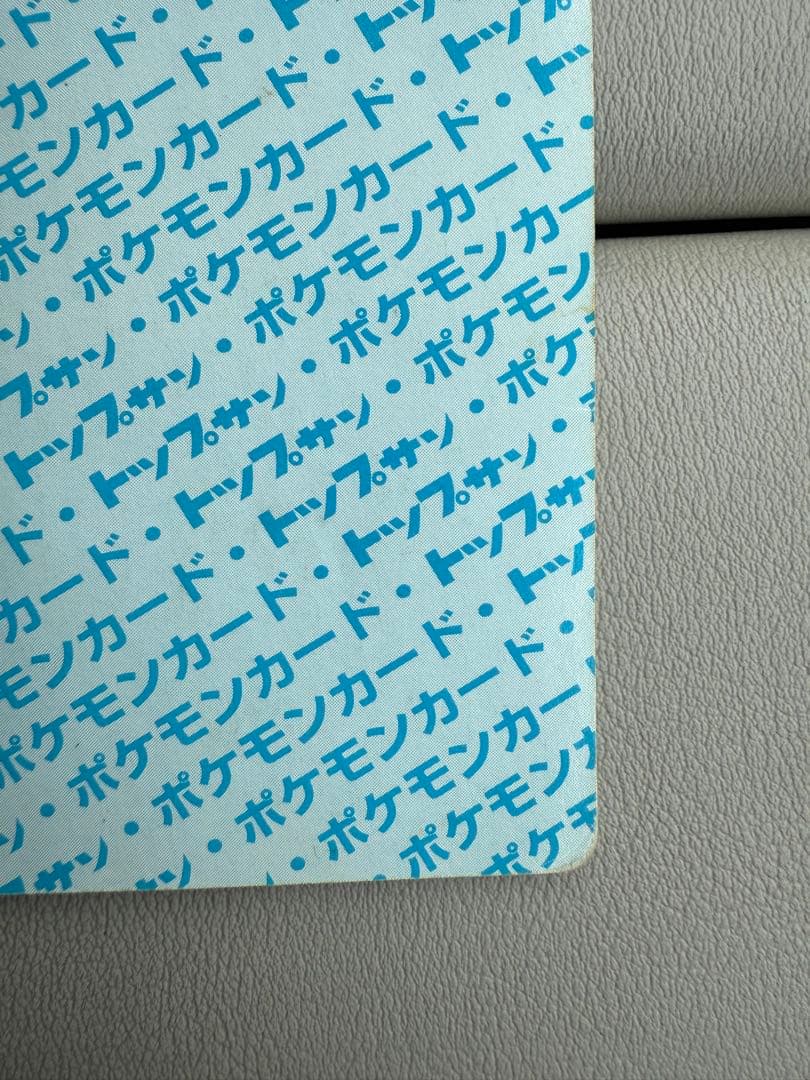 ド
カード・
モンカード・ト
ポケモンカード・ト
ン・ポケモンカード・トップ
プサン・ポケモンカード・トッ
トップサン・ポケモンカード・
ド・トップサン・ポケモンカー
カード・トップサン・ポケモン
モンカード・トップサン・ポケ
ポケモンカード・トップサン・
ン・ポケモンカード・トップサ
プサン・ポケモンカード・トッ
ン・ポケモンカード・
・ポケモンカー
ポケモン
ポケモ